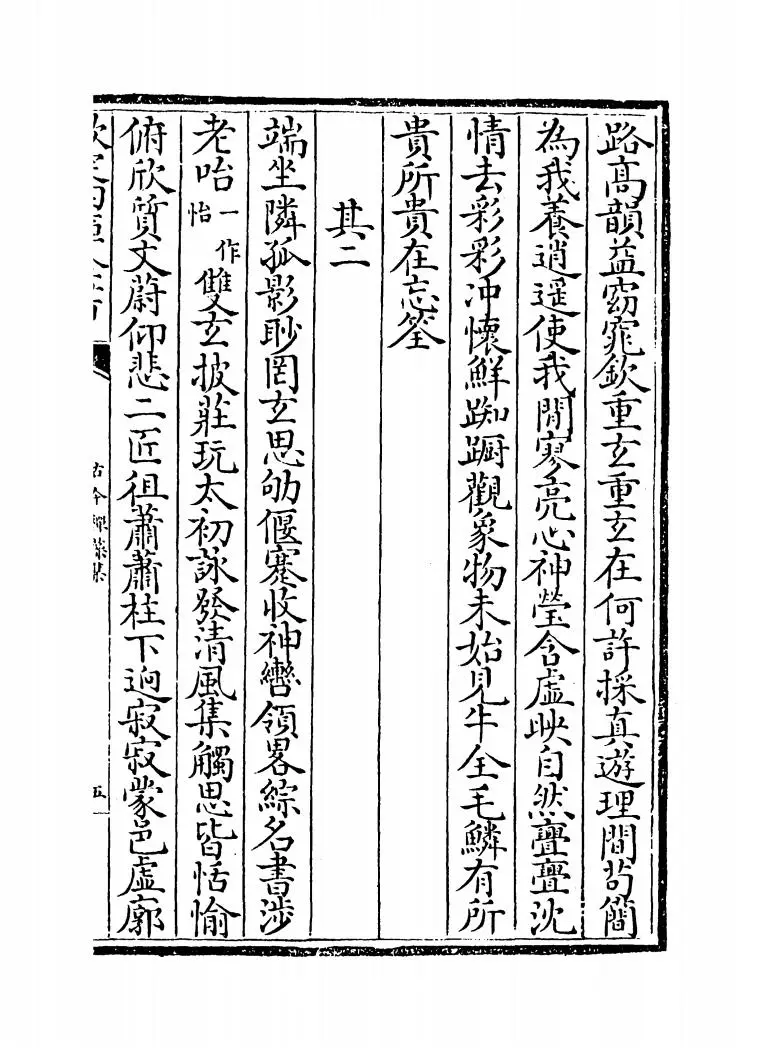 路高韻益窈窕欽重玄重玄在何許採真遊理間茍簡
為我養逍遥使我閒寥亮心神瑩含虛映自然亹亹沈
情去彩彩冲懷鮮踟蹰觀象物未始見牛全毛鱗有所
貴所貴在忘筌
其二
端坐隣孤影眇罔玄思劬偃蹇收神轡領畧綜名書涉
老咍一作怡雙玄披莊玩太初詠發清風集觸思皆恬愉
俯欣質文蔚仰悲二匠徂蕭蕭柱下逈寂寂蒙邑虛廓
古今禪藻集
五